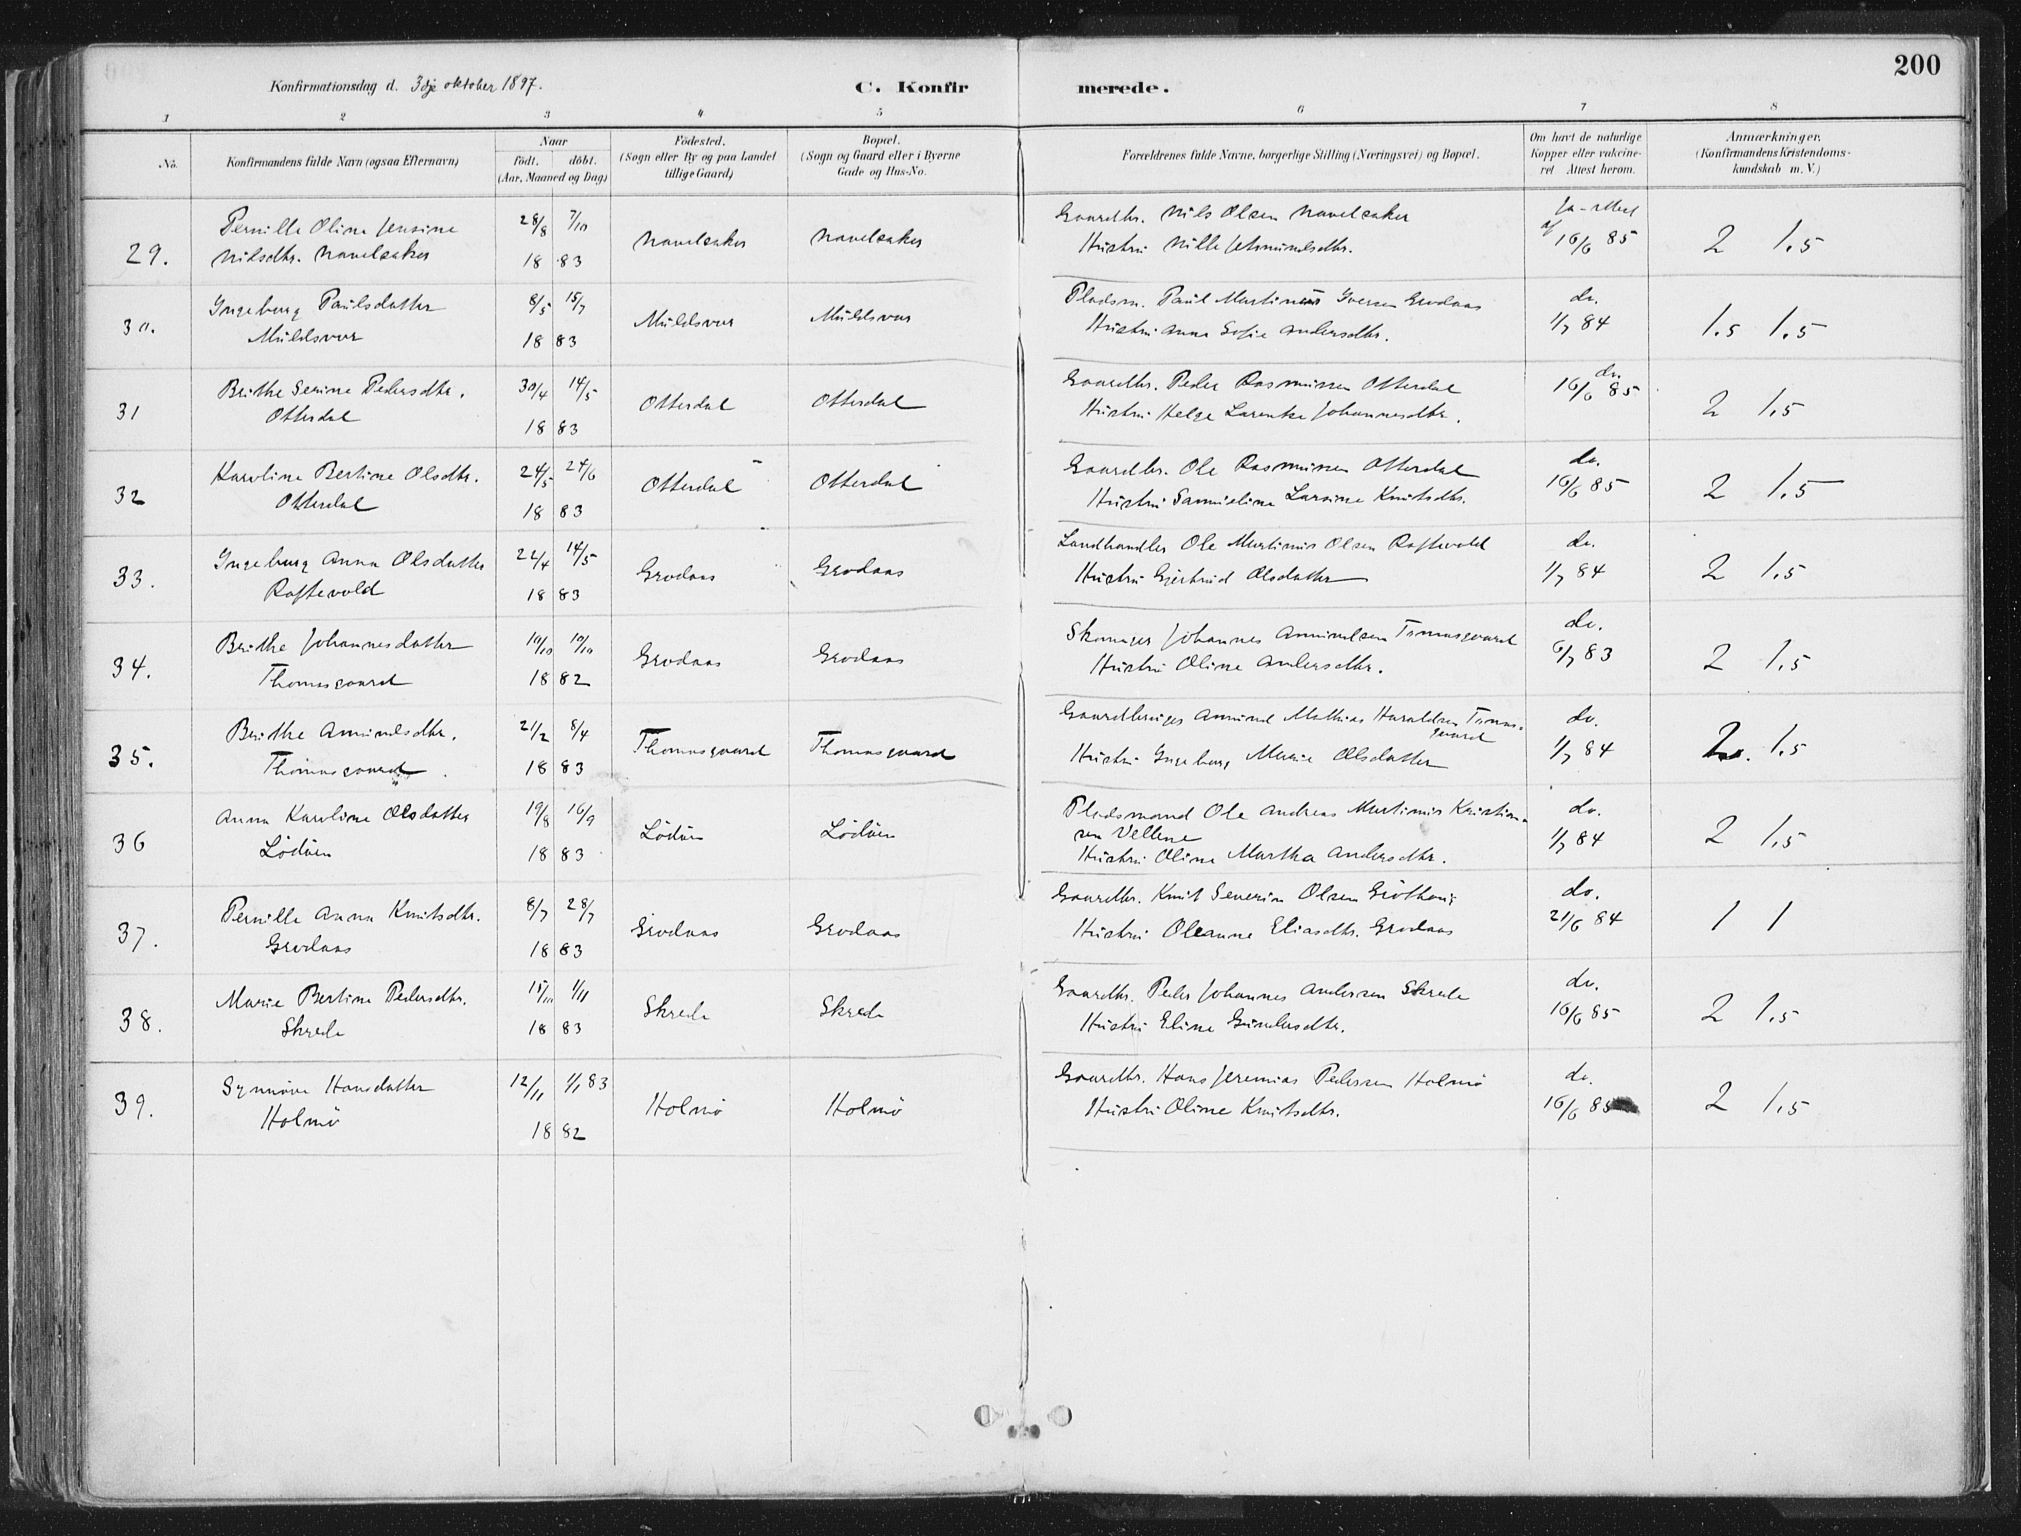 200
Konfirmationsdag d. 3dje oktober 1897.
C. Konfirmerede.
1 2 3 4 5 6 7 8
No.
Konfirmandens fulde Navn (ogsaa Efternavn)
Naar
födt. döbt.
(Aar, Maaned og Dag)
Födested.
(Sogn eller By og paa Landet
tillige Gaard)
Bopæl.
(Sogn og Gaard eller i Byerne
Gade og Hus-No.
Forældrenes fulde Navne, borgerlige Stilling (Næringsvei) og Bopæl.
Om havt de naturlige
Kopper eller vakcine-
ret Attest herom.
Anmærkninger.
(Konfirmandens Kristendoms-
kundskab m. V.)
29. Pernille Oline Jensine 28/8 7/10 Navelsaker Navelsaker Gaardbr. Nils Olsen Navelsaker Ja-Attest
Nilsdtr. Navelsaker 18 83 Hustru Nille Jetmundsdtr. af 16/6 85 2 1.5
30. Ingeborg Paulsdatter 8/5 15/7 Muldsvor Muldsvor Pladsm. Paul Martinus Iversen Grodaas do.
Muldsvor 18 83 Hustru Anna Sofie Andersdtr. 1/7 84 1.5 1.5
31 Brithe Serine Pedersdtr. 30/4 14/5 Otterdal Otterdal Gaardbr. Peder Rasmussen Otterdal do.
Otterdal 18 83 Hustru Helge Larentse Johannesdtr. 16/6 85 2 1.5
32 Karoline Bertine Olsdtr. 24/5 24/6 Otterdal Otterdal Gaardbr. Ole Rasmussen Otterdal do.
Otterdal 18 83 Hustru Samueline Larsine Knutsdtr. 16/6 85 2 1.5
33. Ingeborg Anna Olsdatter 22/4 14/5 Grodaas Grodaas Landhandler Ole Martinus Olsen Raftevold do.
Raftevold 18 83 Hustru Gjertrud Olsdatter 1/7 84 2 1.5
34. Brithe Johannesdatter 10/10 Grodaas Grodaas Skomager Johannes Amundsen Tomasgaard do.
Thomasgaard 18 82 Hustru Oline Andersdtr. 6/7 83 2 1.5
35. Brithe Amundsdtr. 21/2 8/4 Thomasgaard Thomasgaard Gaardbruger Amund Mathias Haraldsen Tomas-
gaard do.
Thomasgaard 18 83 Hustru Ingeborg Marie Olsdatter 1/7 84 2. 1.5
36 Anna Karoline Olsdatter 19/8 16/9 Lödöen Lödöen Pladsmand Ole Andreas Martinus Kristian- do.
sen Vellene
Lödöen 18 83 Hustru Oline Martha Andersdtr. 1/7 84 2 1.5
37. Pernille Anna Knutsdtr. 8/7 28/7 Grodaas Grodaas Gaardbr. Knut Severin Olsen do.
Grodaas 18 83 Hustru Oleanne Eliasdtr. Grodaas 21/6 84 1 1
38. Marie Bertine Pedersdtr. 15/10 1/11 Skrede Skrede Gaardbr. Peder Johannes Andersen Skrede do.
Skrede 18 83 Hustru Eline Gundersdtr. 16/6 85 2 1.5
39. Synnöve Hansdatter 12/11 1/1 83 Holmö Holmö Gaardbr. Hans Jeremias Pedersen Holmö do.
Holmö 18 82 Hustru Oline Knutsdtr. 16/6 85 2 1.5